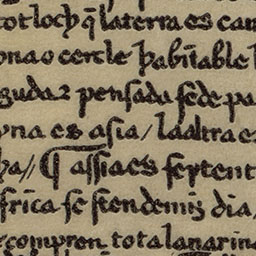 tot loch q̃ la terra es cam
ona o cercle habitable
guda ⁊ pensada se de pa
vna es asia / la altra es
ha // ¶ assia es septent
frica se sten de mig dia
compren tota la marina